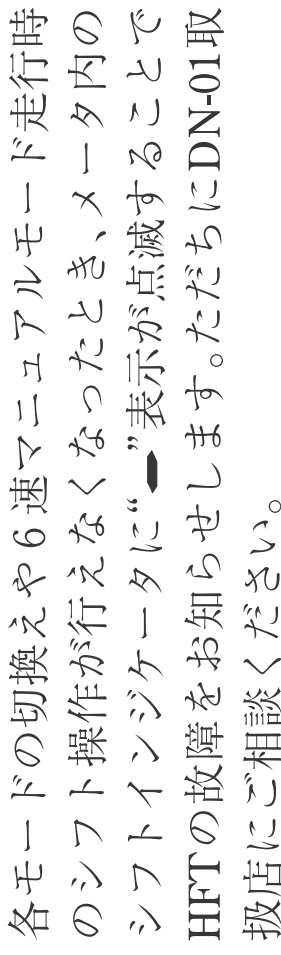 各モードの切換えや6速マニュアルモード走行時
のシフト操作が行えなくなったとき、メータ内の
シフトインジケータに“━”表示が点滅することで
HFTの故障をお知らせします。ただちにDN-01取
扱店にご相談ください。